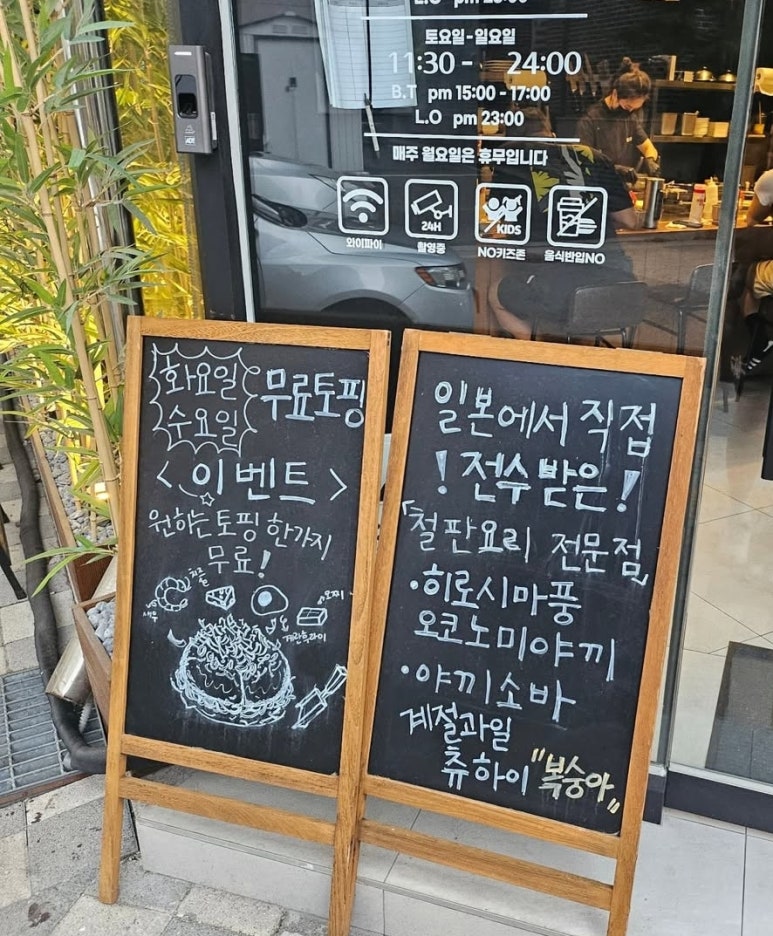 L.O pm 23:00
토요일-일요일
11:30 - 24:00
B.T pm 15:00 - 17:00
L.O pm 23:00
매주 월요일은 휴무입니다
24H
KIDS
와이파이
촬영중
NO키즈존
음식반입NO
화요일
수요일
무료토핑
<이벤트>
원하는 토핑 한가지
무료!
치즈
새우
모찌
계란후라이
일본에서 직접
!전수 받은!
「철판요리 전문점」
·히로시마풍
오코노미야끼
·야끼소바
계절과일
츄하이 "복숭아"